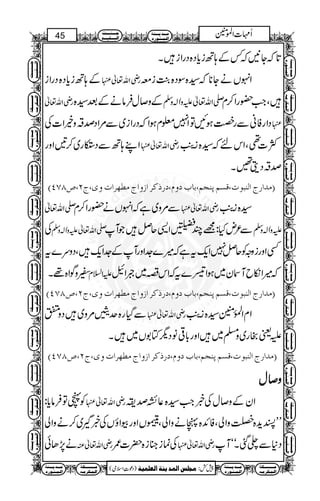 اُمہات المؤمنین
45
تا کہ جانیں کہ کس کے ہاتھ زیادہ دراز ہیں۔
انہوں نے جانا کہ سیدہ سودہ بنت زمعہ رضی اللہ تعالیٰ عنہا کے ہاتھ زیادہ دراز
ہیں، جب حضور اکرم صلی اللہ تعالیٰ علیہ والہ وسلم کے وصال فرمانے کے بعد سیدہ رضی اللہ تعالیٰ
عنہا دار فانی سے رخصت ہوئیں تو انہیں معلوم ہوا کہ درازی سے مراد صدقہ و خیرات کی
کثرت تھی، اس لئے کہ سیدہ زینب رضی اللہ تعالیٰ عنہا اپنے ہاتھ سے دستکاری کرتیں اور
صدقہ دیتی تھیں۔
(مدارج النبوت،قسم پنجم،باب دوم،درذکر ازواج مطہرات وی،ج۲،ص۴۷۸)
سیدہ زینب رضی اللہ تعالیٰ عنہا سے مروی ہے کہ انہوں نے حضور اکرم صلی اللہ تعالیٰ
علیہ والہ وسلم سے عرض کیا: مجھے چند فضیلتیں ایسی حاصل ہیں جو آپ صلی اللہ تعالیٰ علیہ والہ وسلم کی
کسی اور زوجہ کو حاصل نہیں ایک یہ کہ میرے جد اور آپ کے جد ایک ہیں، دوسرے یہ
کہ میرا نکاح آسمان میں ہوا تیسرے یہ کہ اس قصہ میں جبرائیل علیہ السلام سفیر و گواہ تھے۔
(مدارج النبوت،قسم پنجم،باب دوم،درذکر ازواج مطہرات وی،ج۲،ص۴۷۸)
ام المؤمنین سیدہ زینب رضی اللہ تعالیٰ عنہا سے گیارہ حدیثیں مروی ہیں دو متفق
علیہ یعنی بخاری و مسلم میں ہیں اور باقی نو دیگر کتابوں میں ہیں۔
(مدارج النبوت،قسم پنجم،باب دوم،درذکر ازواج مطہرات وی،ج۲،ص۴۷۸)
وصال
ان کے وصال کی خبر جب سیدہ عائشہ صدیقہ رضی اللہ تعالیٰ عنہا کو پہنچی تو فرمایا:
’’پسندیدہ خصلت والی، فائدہ پہنچانے والی، یتیموں اور بیواؤں کی خبر گیری کرنے والی
دنیا سے چلی گئی۔‘‘ آپ رضی اللہ تعالیٰ عنہا کی نماز جنازہ حضرت عمر رضی اللہ تعالیٰ عنہ نے پڑھائی
پیش کش: مجلس المدینۃ العلمیۃ (دعوت اسلامی)